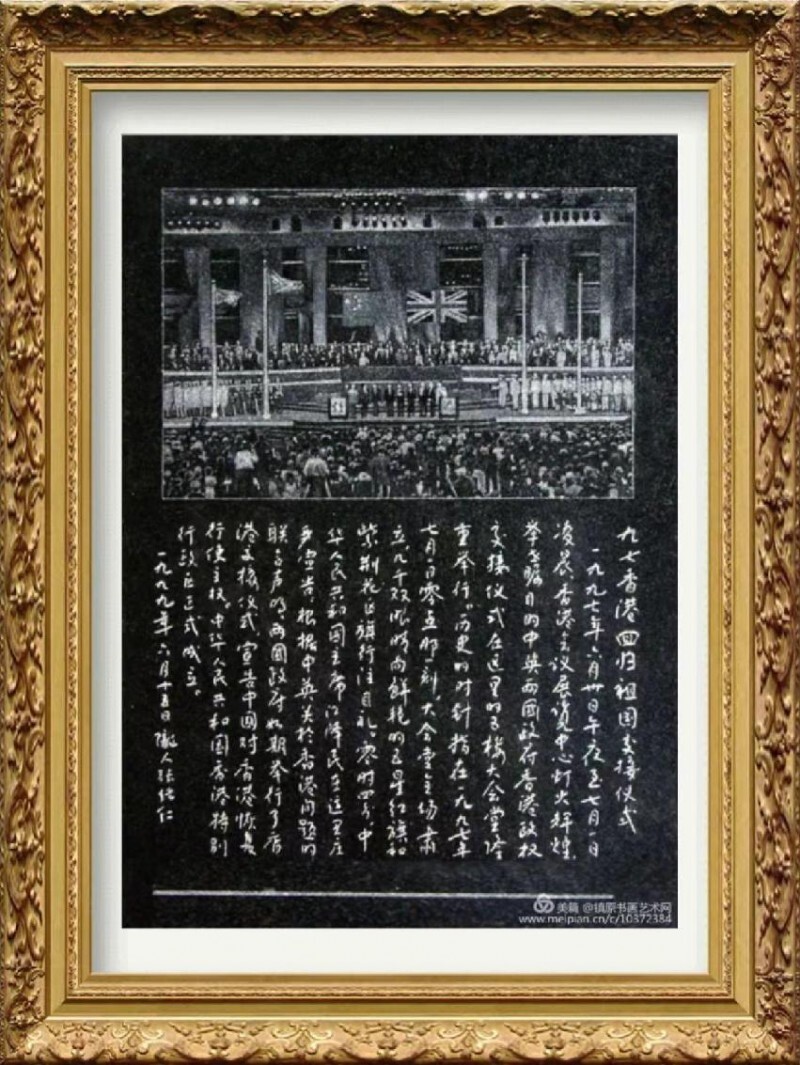 九七香港回归祖国交接仪式
一九九七年六月卅日午夜至七月一日
凌晨香港会议展览中心灯火辉煌,
举世瞩目的中英两国政府香港政权
交接仪式在这里的五楼大会堂隆
重举行。历史的时针指在一九九七年
七月一日零点那一刻。大会堂全场肃
立,几千双眼睛向鲜艳的五星红旗和
紫荆花区旗行注目礼。零时四分,中
华人民共和国主席江泽民在这里庄
严宣告:根据中英关於香港问题的
联合声明,两国政府如期举行了香
港交接仪式,宣告中国对香港恢复
行使主权。中华人民共和国香港特别
行政区正式成立。
一九九九年六月十五日 陇人张
仁
美篇 @镇原书画艺术网
www.meipian.cn/c/10372384